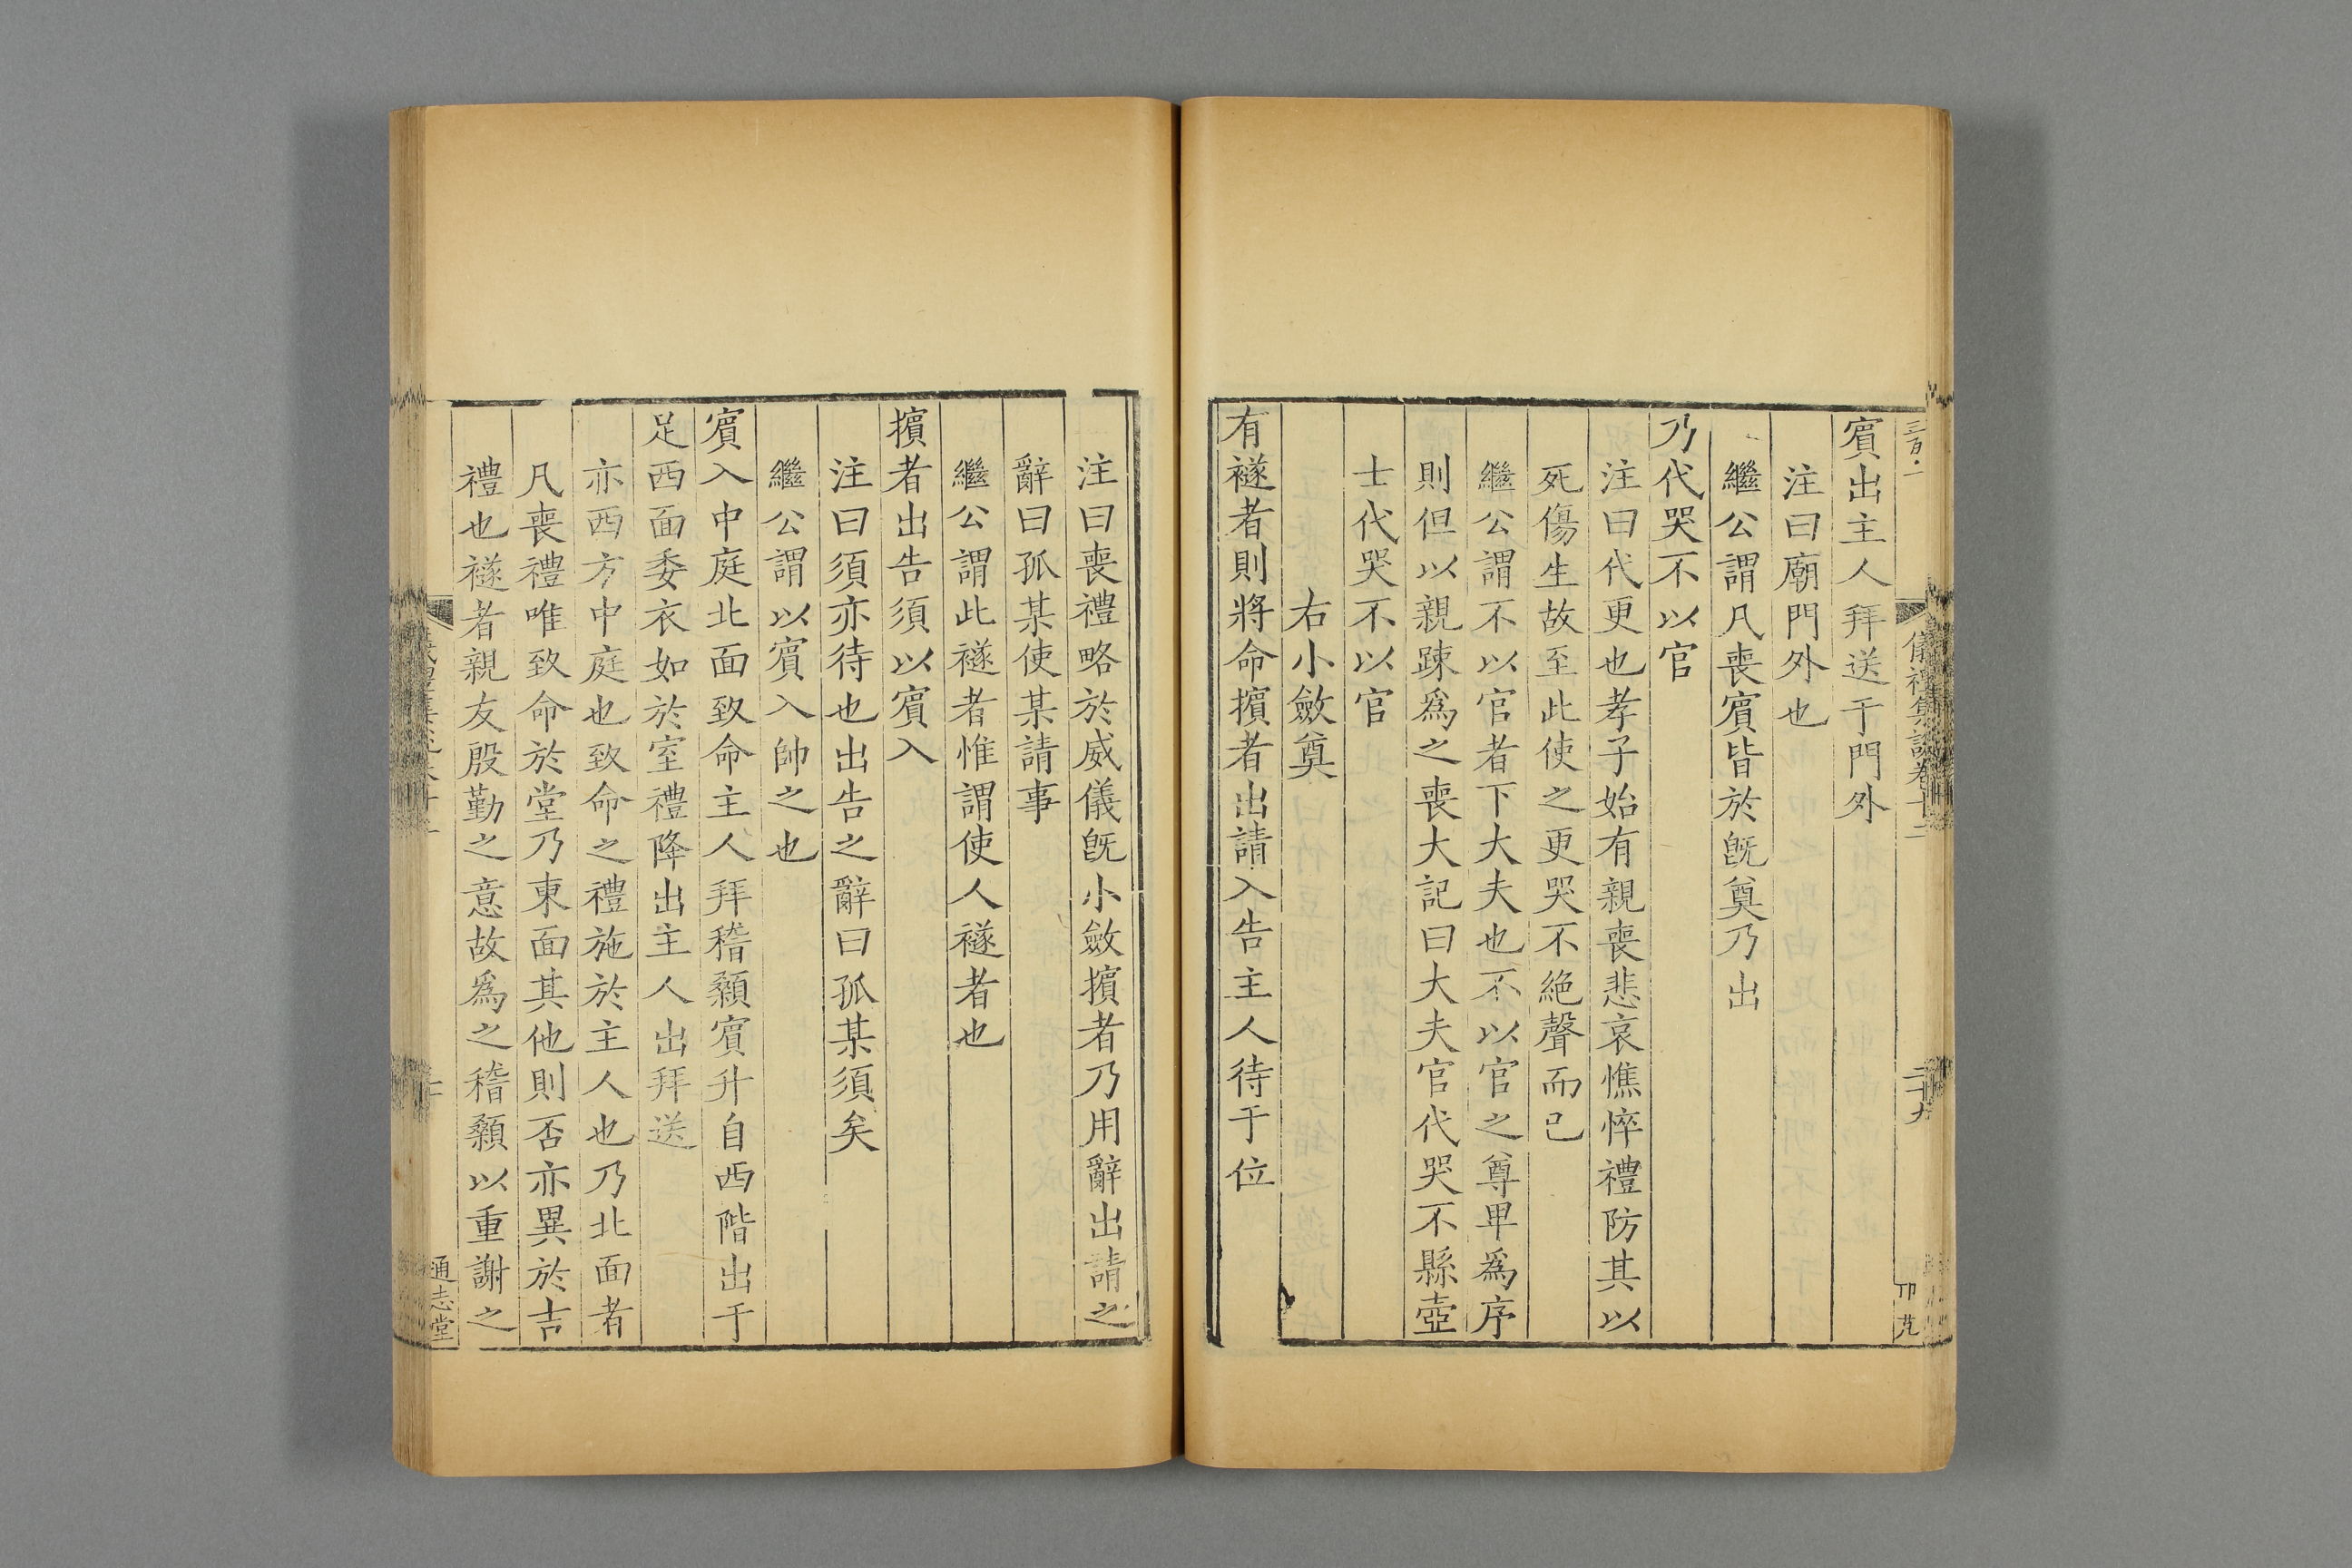 賓出主人拜送于門外
注曰廟門外也
繼公謂凡喪賓皆於旣奠乃出
乃代哭不以官
注曰代更也孝子始有親喪悲哀憔悴禮防其以
死傷生故至此使之更哭不絶聲而已
繼公謂不以官者下大夫也不以官之尊卑爲序
則但以親踈爲之喪大記曰大夫官代哭不縣壺
士代哭不以官
右小斂奠
有襚者則將命擯者出請入告主人待于位
注曰喪禮略於威儀旣小斂擯者乃用辭出請之
辭曰孤某使某請事
繼公謂此襚者惟謂使人襚者也
擯者出告須以賓入
注曰須亦待也出告之辭曰孤某須矣
繼公謂以賓入帥之也
賓入中庭北面致命主人拜稽顙賓升自西階出于
足西面委衣如於室禮降出主人出拜送
亦西方中庭也致命之禮施於主人也乃北面者
凡喪禮唯致命於堂乃東面其他則否亦異於吉
禮也襚者親友殷勤之意故爲之稽顙以重謝之
儀禮集說卷十二
二十九
通志堂